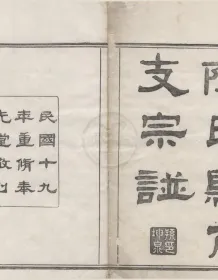 陳氏縣
支宗譜
民國十九
年重脩奉
先堂敬刊